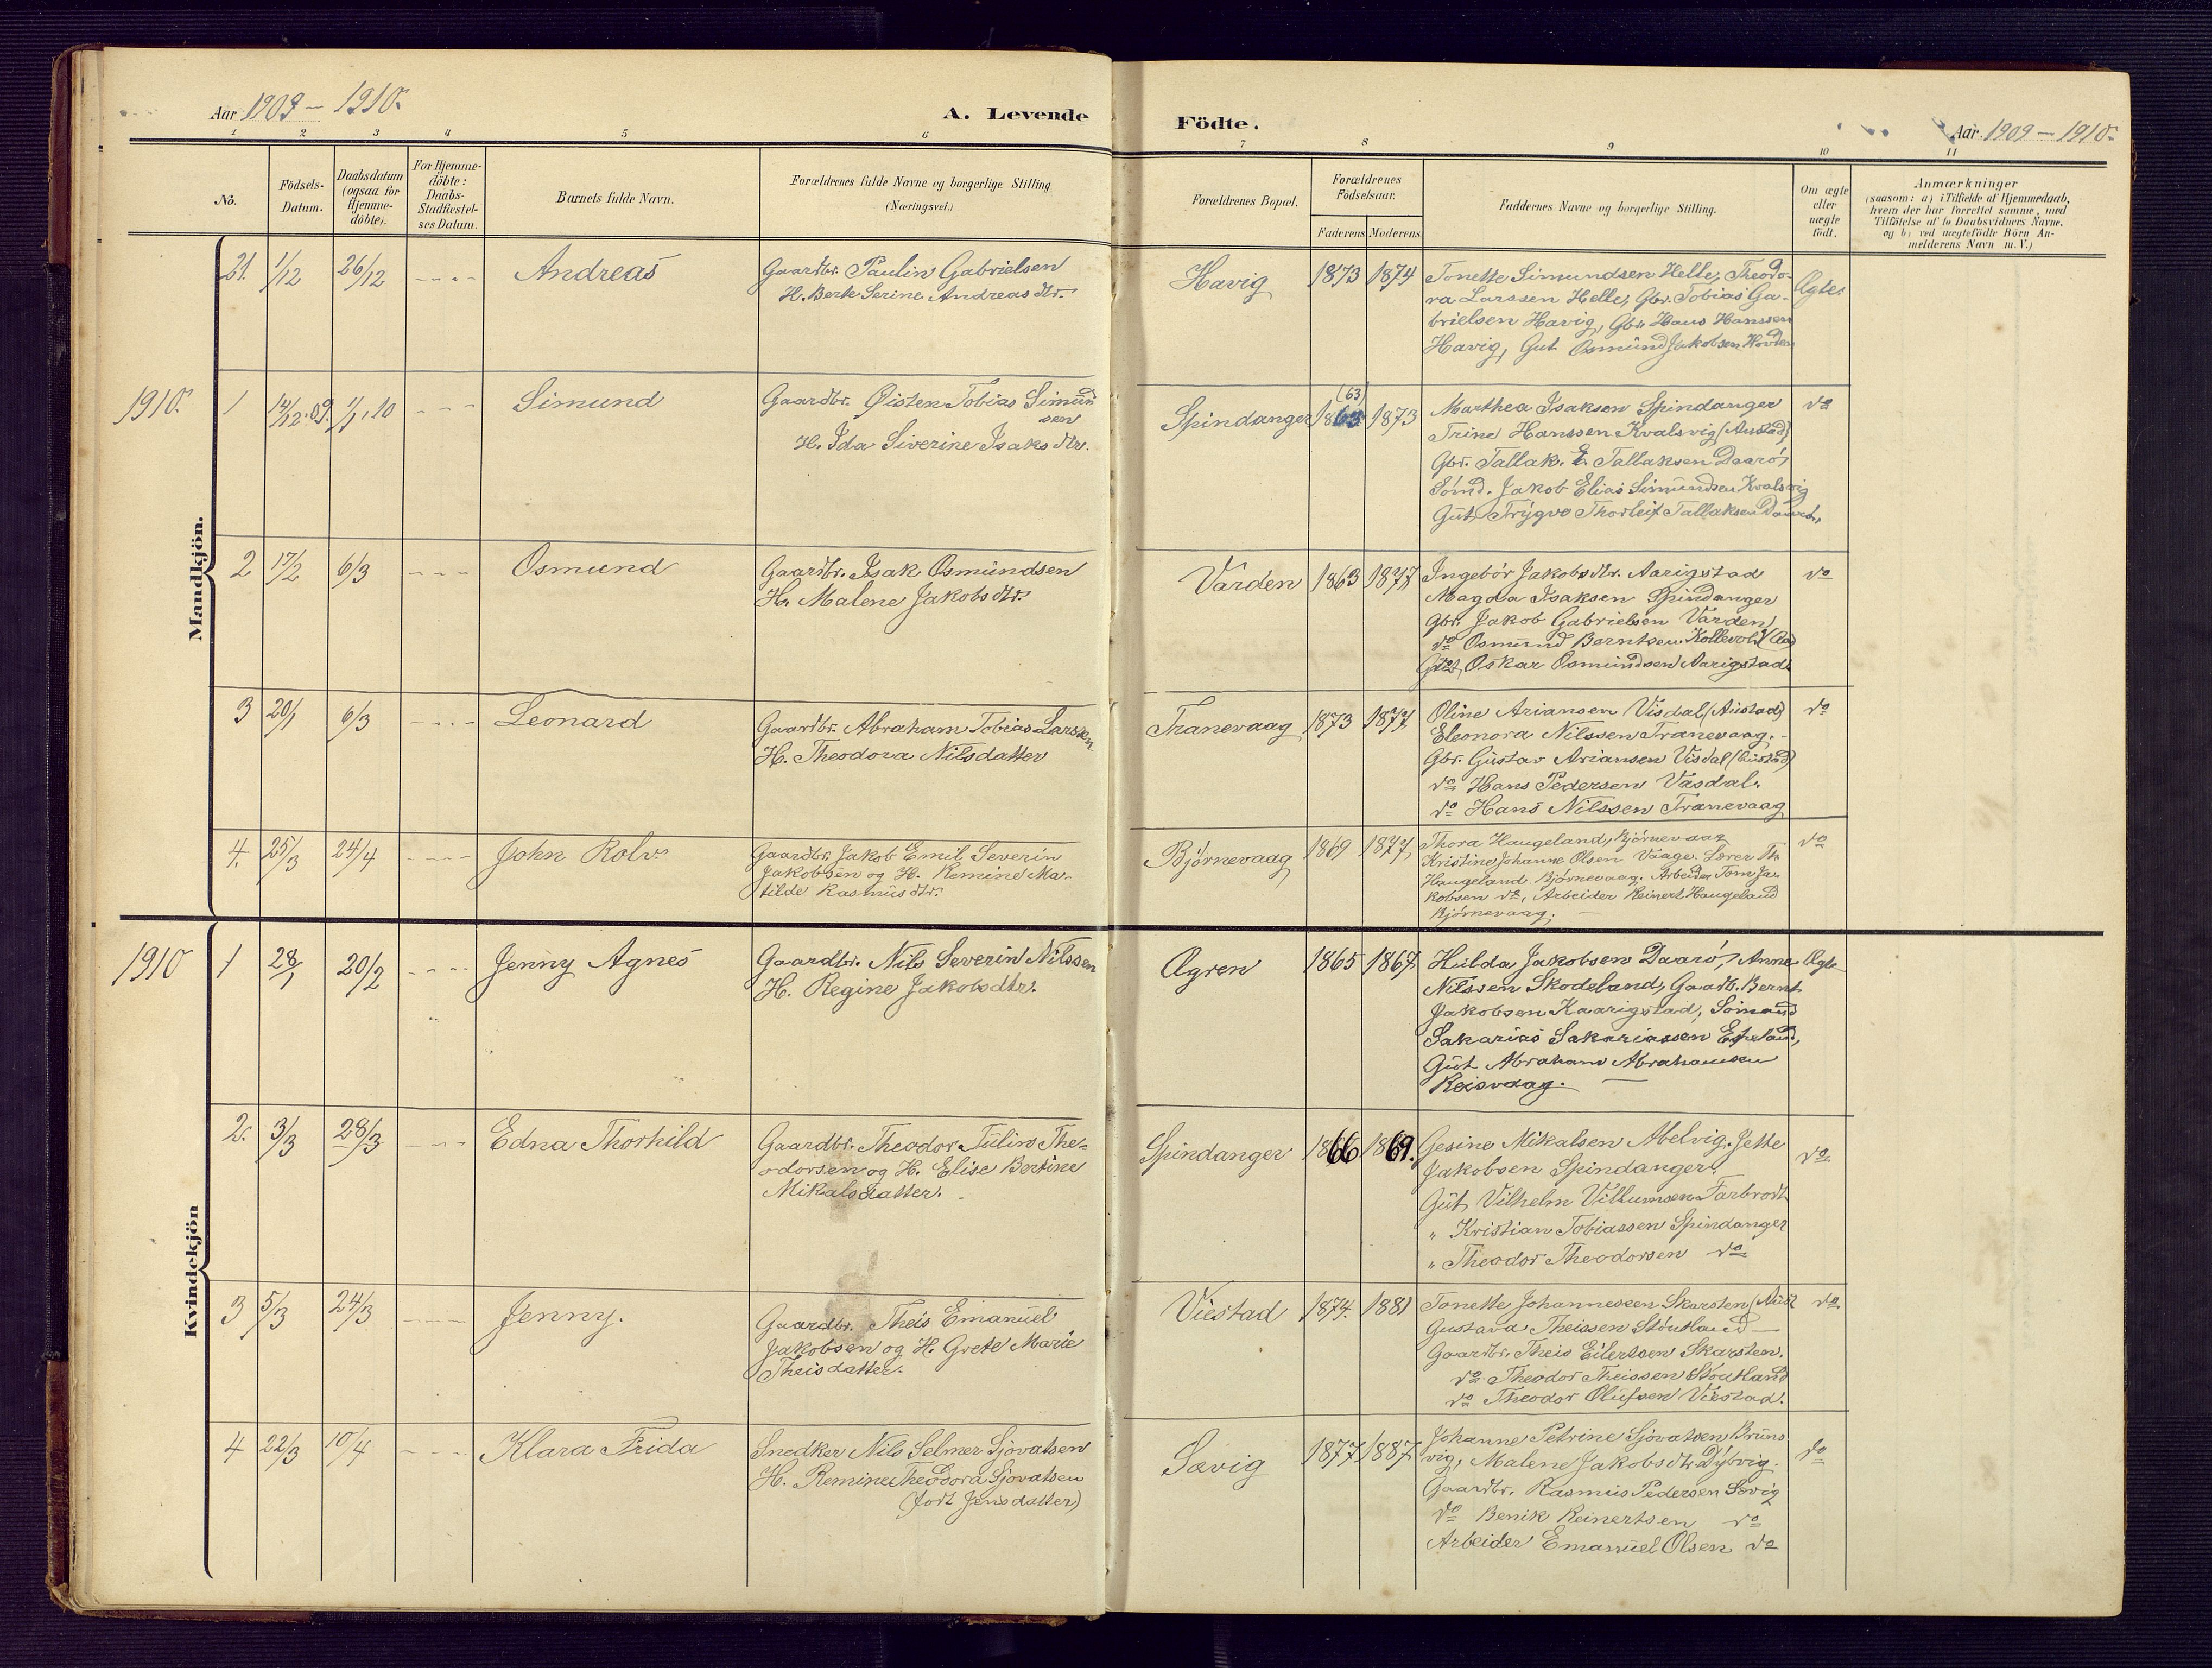 Aar 1909 – 1910.
A. Levende
Födte.
Aar 1909 – 1910.
1 2 3 4 5 6 7 8 9 10 11
No.
Födsels-
Datum.
Daabsdatum
(ogsaa for
Hjemme-
döbte).
For Hjemme-
döbte:
Daabs-
Stadfæstel-
ses Datum.
Barnets fulde Navn.
Forældrenes fulde Navne og borgerlige Stilling.
(Næringsvei.)
Forældrenes Bopæl.
Forældrenes
Födselsaar.
Faderens Moderens.
Faddernes Navne og borgerlige Stilling.
Om ægte
eller
uægte
födt.
Anmærkninger
(saasom: a) i Tilfælde af Hjemmedaab,
hvem der har forrettet samme, med
Tilföielse af to Daabsvidners Navne.
og b) ved uægtefödte Börn An-
melderens Navn m. V.)
Mandkjön.
21. 1/12 26/12 ---- Andreas
Gaardbr. Paulin Gabrielsen
H. Berte Serine Andreasdtr.
Havig 1873 1874
Tonette Simundsen Helle, Theodo-
ra Larssen Helle, Gbr. Tobias Ga-
brielsen Havig, Gbr. Hans Hanssen
Havig, Gut Osmund Jakobsen Hovden
Ægte.
1910. 1 14/12.09. 1/1.10 --- Simund
Gaardbr. Øisten Tobias Simund
sen
H. Ida Siverine Isaksdtr.
Spindanger (63) 1863 1873
Marthea Isaksen Spindanger
Trine Hanssen Kvalsvig (Austad)
Gbr. Tallak. E. Tallaksen Daarö,
Sömd. Jakob Elias Simundsen Kvalsvig
Gut Trygve Thorleif Tallaksen
do
2 17/2 6/3 --- Osmund
Gaardbr. Isak Osmundsen
H. Malene Jakobsdtr.
Varden 1863 1877
Ingebör Jakobsdtr. Aarigstad
Magda Isaksen Spindanger
Gbr. Jakob Gabrielsen Varden
do Osmund Berntsen
Gut Oskar Osmundsen Aarigstad
do
3 20/1 6/3 ---- Leonard
Gaardbr. Abraham Tobias Larssen
H. Theodora Nilsdatter
Tranevaag 1873 1877
Oline Ariansen Visdal (Austad)
Eleonora Nilssen Tranevaag.
Gbr. Gustav Ariansen Visdal (Austad)
do Hans Pedersen Vasdal.
do Hans Nilssen Tranevaag
do
4. 25/3 24/4 ---- John Rolv.
Gaardbr. Jakob Emil Severin
Jakobsen og H. Remine Ma-
tilde Rasmusdtr.
Björnevaag 1869 1877
Thora Haugeland, Björnevaag
Kristine Johanne Olsen Vaage. Lærer Th.
Haugeland. Björnevaag. Arbeider Tom Ja-
kobsen do, Arbeider Reinert Haugeland
Björnevaag.
do
Kvindekjön
1910 1 28/1 20/2 ---- Jenny Agnes
Gaardbr. Nils Severin Nilssen
H. Regine Jakobsdtr.
Øgren 1865 1867
Hulda Jakobsen Daarö, Anne
Nilssen Skodeland, Gaardb. Bernt
Jakobsen Kaarigstad, Sömand
Sakarias Sakariassen Espeland,
Gut Abraham Abrahamsen
Reisvaag.
Ægte
2. 3/3 28/3 ---- Edna Thorhild
Gaardbr. Theodor Tulin The-
odorsen og H. Elise Bertine
Mikalsdatter.
Spindanger 1866 1869.
Gesine Mikalsen Abelvig, Jette
Jakobsen Spindanger.
Gut Vilhelm Villumsen Farbrodt
" Kristian Tobiassen Spindanger
" Theodor Theodorsen do
do
3 5/3 24/3 ---- Jenny.
Gaardbr. Theis Emanuel
Jakobsen og H. Grete Marie
Theisdatter.
Viestad 1874. 1881
Tonette Johannessen Skarsten
Gustava Theissen Stöutland
Gaardbr. Theis Eilertsen Skarsten.
do Theodor Theissen Stöutland
do Theodor Olufsen Viestad.
do
4 22/3 10/4 ---- Klara Frida
Snedker Nils Selmer Sjövatsen
H. Remine Theodora Sjovatsen
(födt Jensdatter)
Sævig 1877 1887
Johanne Petrine Sjövatsen Bruns
vig, Malene Jakobsdtr. Dybvig.
Gaardbr. Rasmus Pedersen Sævig
do Benik Reinertsen do
Arbeider Emanuel Olsen do
do